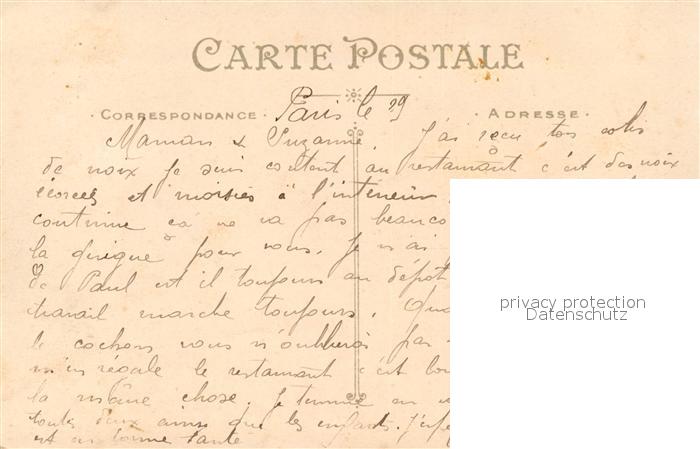 CARTE POSTALE
CORRESPONDANCE
ADRESSE
Paris le 29
Maman & Suzanne, J'ai reçu ton colis
de noix je suis content au restaurant c'est des noix
écorcés et moisies à l'intérieur
continue ça ne va pas beauco
la pour vous. Je n'ai
de Paul est il toujours au dépot
travail marche toujours. Qua
le cochons vous n'oublierai pas
m'en régale le restaurant c'est tou
la même chose. Je termine en v
toutes deux ainsi que les enfants. J'espè
est en bonne santé
privacy protection
Datenschutz